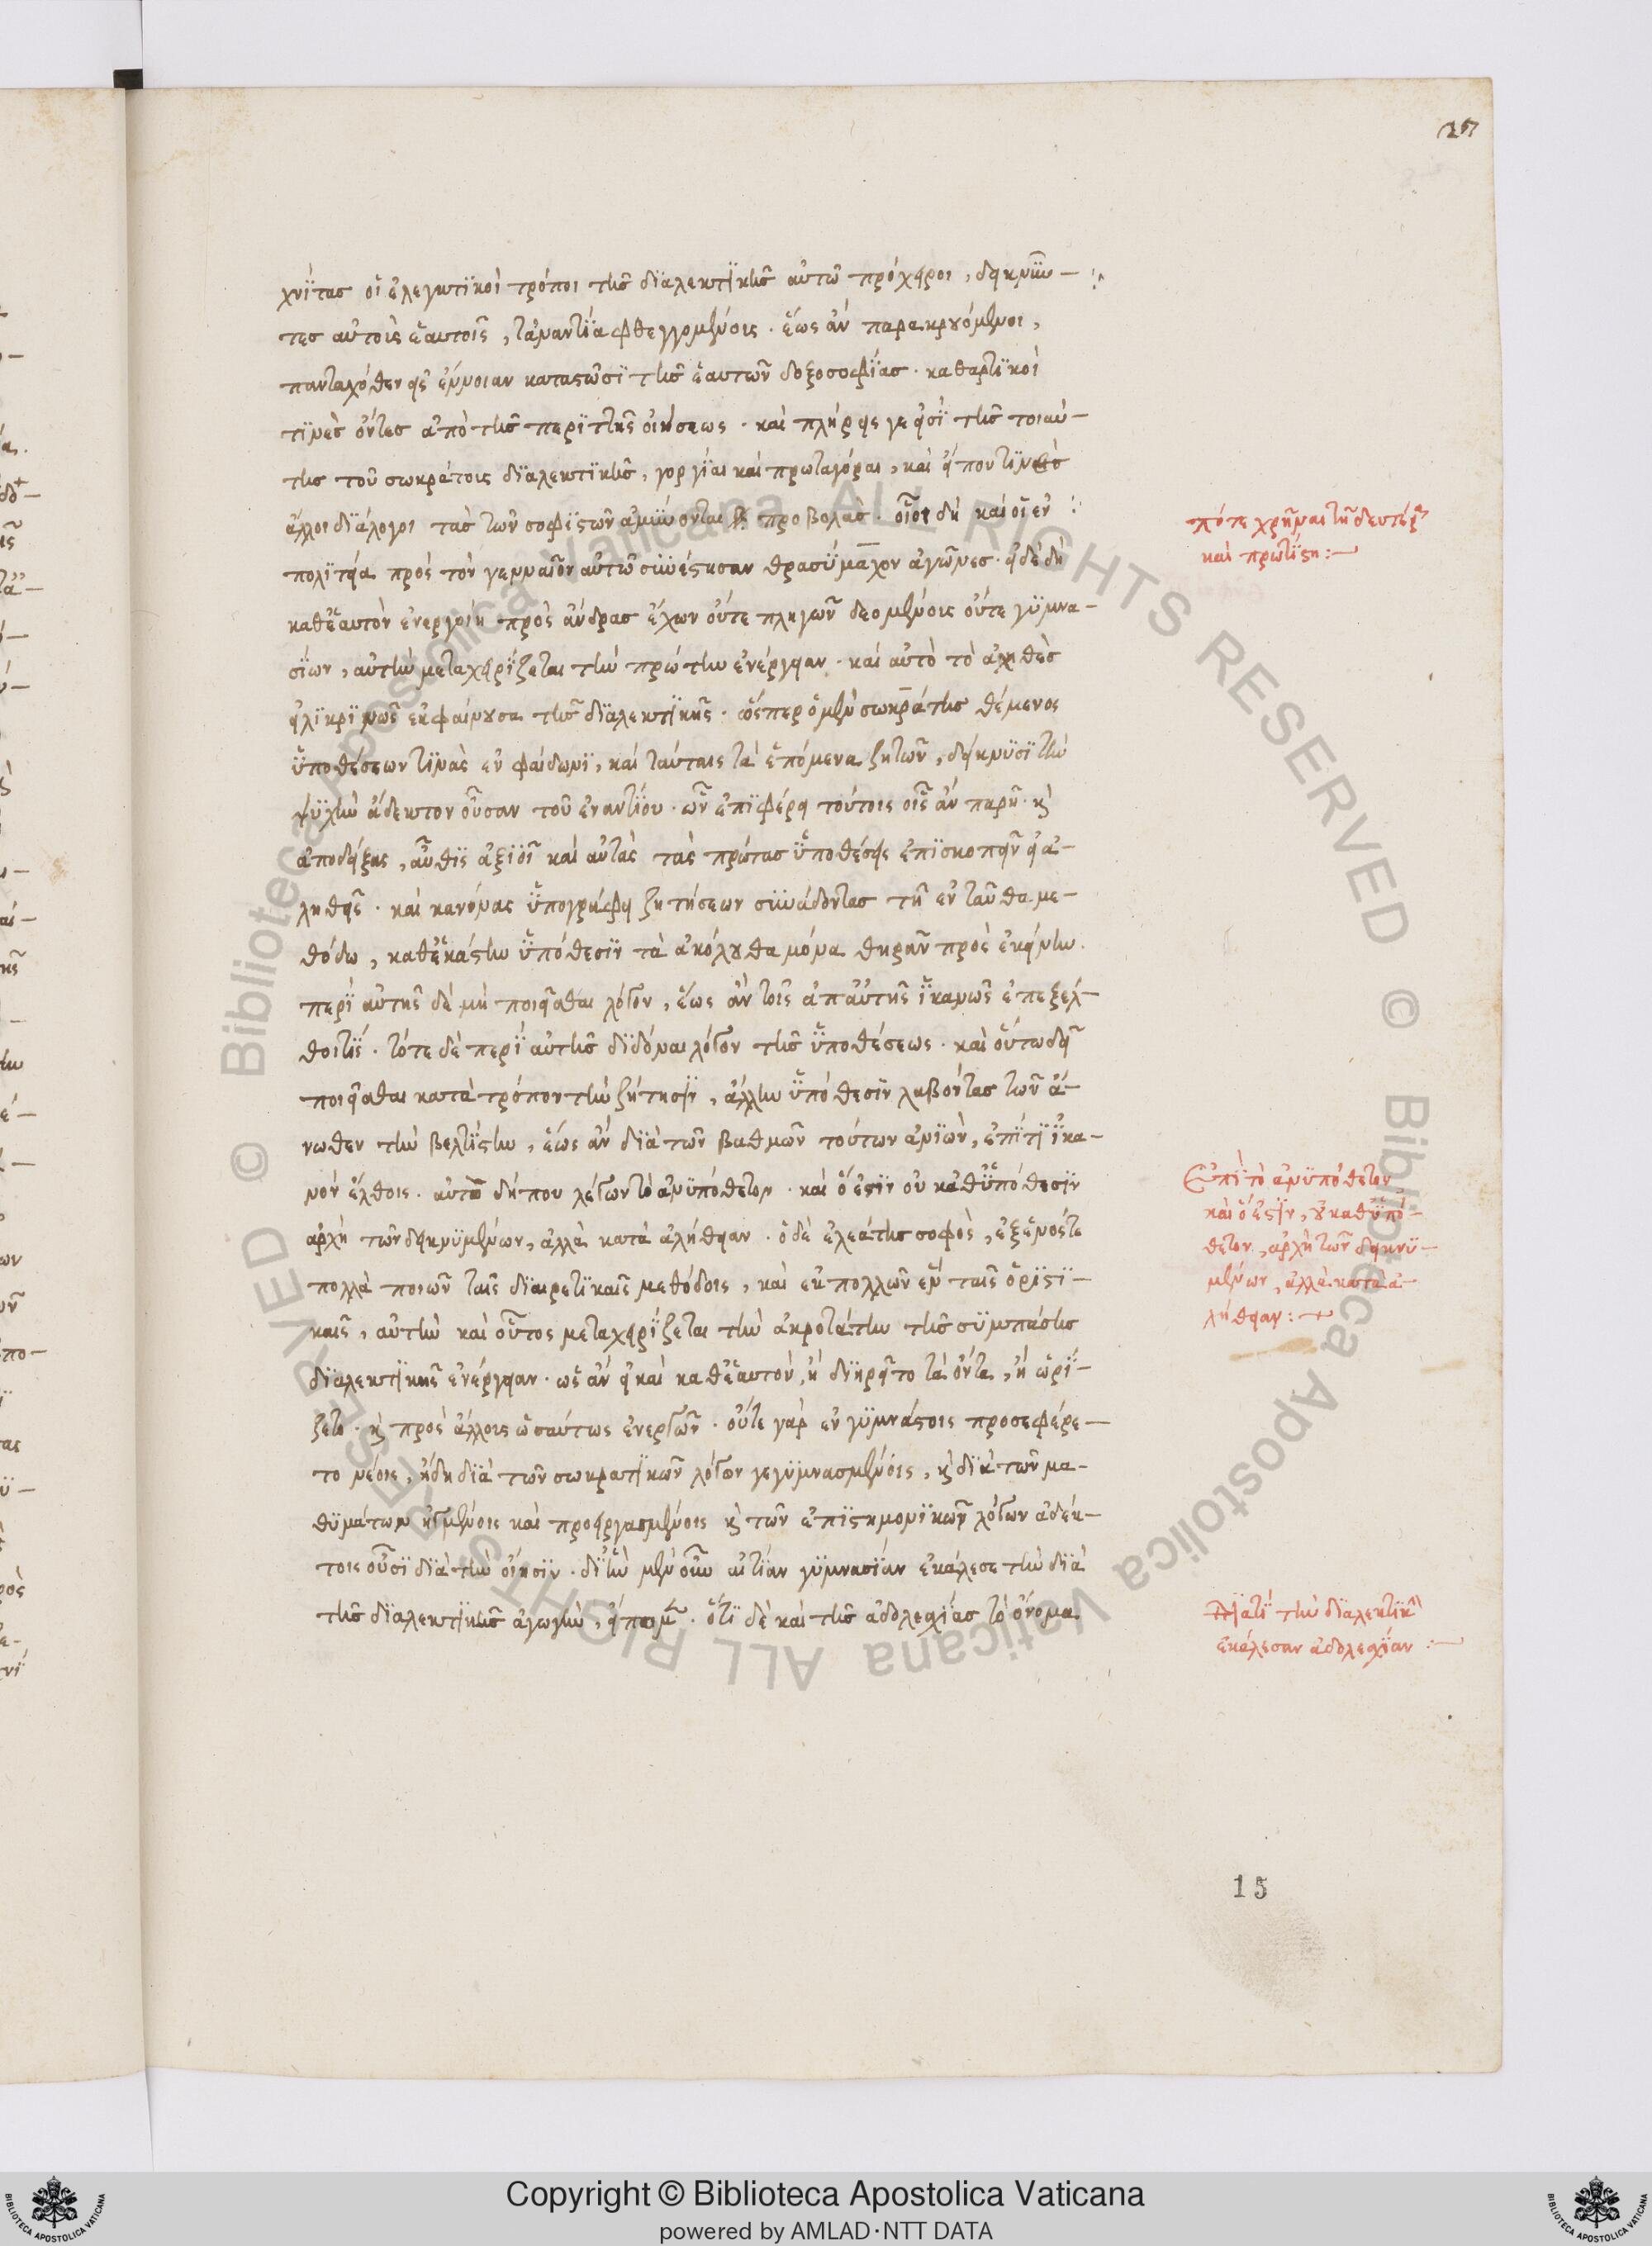 χνίτας οἱ ἐλεγκτικοὶ τρόποι τῆς διαλεκτικῆς αὐτῶ πρόχειροι, δεικνύν-
τες αὐτοὺς ἑαυτοῖς, τἀναντία φθεγγομένους. ἕως ἂν παρακρουόμενοι,
πανταχόθεν εἰς ἔννοιαν καταστῶσι τῆς ἑαυτῶν δοξοσοφίας. καθαρτικοὶ
τινὲς ὄντες ἀπὸ τῆς περιττῆς οἰήσεως. καὶ πλήρεις γε εἰσὶ τῆς τοιαύ-
της τοῦ σωκράτους διαλεκτικῆς, γοργίαι καὶ πρωταγόραι, καὶ εἴπου τινὲς
ἄλλοι διάλογοι τὰς τῶν σοφιστῶν ἀμύνονται προβολὰς. οἷοι δὴ καὶ οἱ ἐν
πολιτεία πρὸς τὸν γενναῖον αὐτῶ συνέστησαν θρασύμαχον ἀγῶνες. εἰ δὲ δὴ
καθ' ἑαυτὸν ἐνεργοίη πρὸς ἄνδρας ἔχων οὔτε πληγῶν δεομένους οὔτε γυμνα-
σίων, αὐτὴν μεταχειρίζεται τὴν πρώτην ἐνέργειαν. καὶ αὐτὸ τὸ ἀληθὲς
εἰλικρινῶς ἐκφαίνουσα τῆς διαλεκτικῆς. ὥσπερ ὁ μὲν σωκράτης θέμενος
ὑποθέσεων τινὰς ἐν φαίδωνι, καὶ ταύταις τὰ ἑπόμενα ζητῶν, δείκνυσι τὴν
ψυχὴν ἄδεκτον οὖσαν τοῦ ἐναντίου. ὧν ἐπιφέρει τούτοις οἷς ἂν παρῆ. καὶ
ἀποδείξας, αὖθις ἀξιοῖ καὶ αὐτὰς τὰς πρώτας ὑποθέσεις ἐπισκοπεῖν εἰ ἀ-
ληθεῖς. καὶ κανόνας ὑπογράφει ζητήσεων συνάδοντας τῆ ἐνταῦθα με-
θόδω, καθ' ἑκάστην ὑπόθεσιν τὰ ἀκόλουθα μόνα θηρᾶν πρὸς ἐκείνην.
περὶ αὐτῆς δὲ μὴ ποιεῖσθαι λόγον, ἕως ἂν τοῖς ἀπ' αὐτῆς ἱκανῶς ἐπεξέλ-
θοι τίς. τότε δὲ περὶ αὐτῆς διδόναι λόγον τῆς ὑποθέσεως. καὶ οὕτω δεῖ
ποιεῖσθαι κατὰ τρόπον τὴν ζήτησιν, ἄλλην ὑπόθεσιν λαβόντας τῶν ἄ-
νωθεν τὴν βελτίστην, ἕως ἂν διὰ τῶν βαθμῶν τούτων ἀνιὼν, ἐπί τι ἱκα-
νὸν ἔλθοις. αὐτὸ δήπου λέγων τὸ ἀνυπόθετον. καὶ ὅ ἐστιν οὐ καθ' ὑπόθεσιν
ἀρχὴ τῶν δεικνυμένων, ἀλλὰ κατὰ ἀλήθειαν. ὁ δὲ ἐλεάτης σοφὸς, ἐξ ἑνός τε
πολλὰ ποιῶν ταῖς διαιρετικαῖς μεθόδοις, καὶ ἐκ πολλῶν ἓν ταῖς ὁριστι-
καῖς, αὐτὴν καὶ οὗτος μεταχειρίζεται τὴν ἀκροτάτην τῆς συμπάσης
διαλεκτικῆς ἐνέργειαν. ὡς ἂν εἰ καὶ καθ' ἑαυτὸν, ἢ διηρεῖτο τὰ ὄντα, ἢ ὡρί-
ζετο. καὶ πρὸς ἄλλοις ὡσαύτως ἐνεργῶν. οὔτε γὰρ ἐν γυμνάστοις προσεφέρε-
το νέοις, ἤδη διὰ τῶν σωκρατικῶν λόγων γεγυμνασμένοις, καὶ διὰ τῶν μα-
θημάτων ἠγμένοις καὶ προειργασμένοις καὶ τῶν ἐπιστημονικῶν λόγων ἀδέκ-
τοις οὖσι διὰ τὴν οἴησιν. δι' ἣν μὲν οὖν αἰτίαν γυμνασίαν ἐκάλεσε τὴν διὰ
τῆς διαλεκτικῆς ἀγωγὴν, εἴπομεν. ὅτι δὲ καὶ τῆς ἀδολεσχίας τὸ ὄνομα
πότε χρῆναι τῆ δευτέρα
καὶ πρωτίστη:
Ἐπὶ τὸ ἀνυπόθετον
καὶ ὅ ἐστιν, οὐ καθ' ὑπό-
θετον, ἀρχὴ τῶν δεικνυ-
μένων, ἀλλὰ κατὰ ἀ-
λήθειαν:
Διατί τὴν διαλεκτικὴν
ἐκάλεσαν ἀδολεσχίαν:
15
Copyright © Biblioteca Apostolica Vaticana
powered by AMLAD·NTT DATA